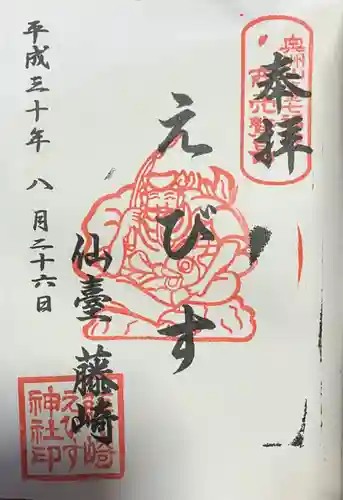 奉拝
えびす
仙臺 藤崎
平成三十年 八 月二十六日
藤崎
えびす
神社印